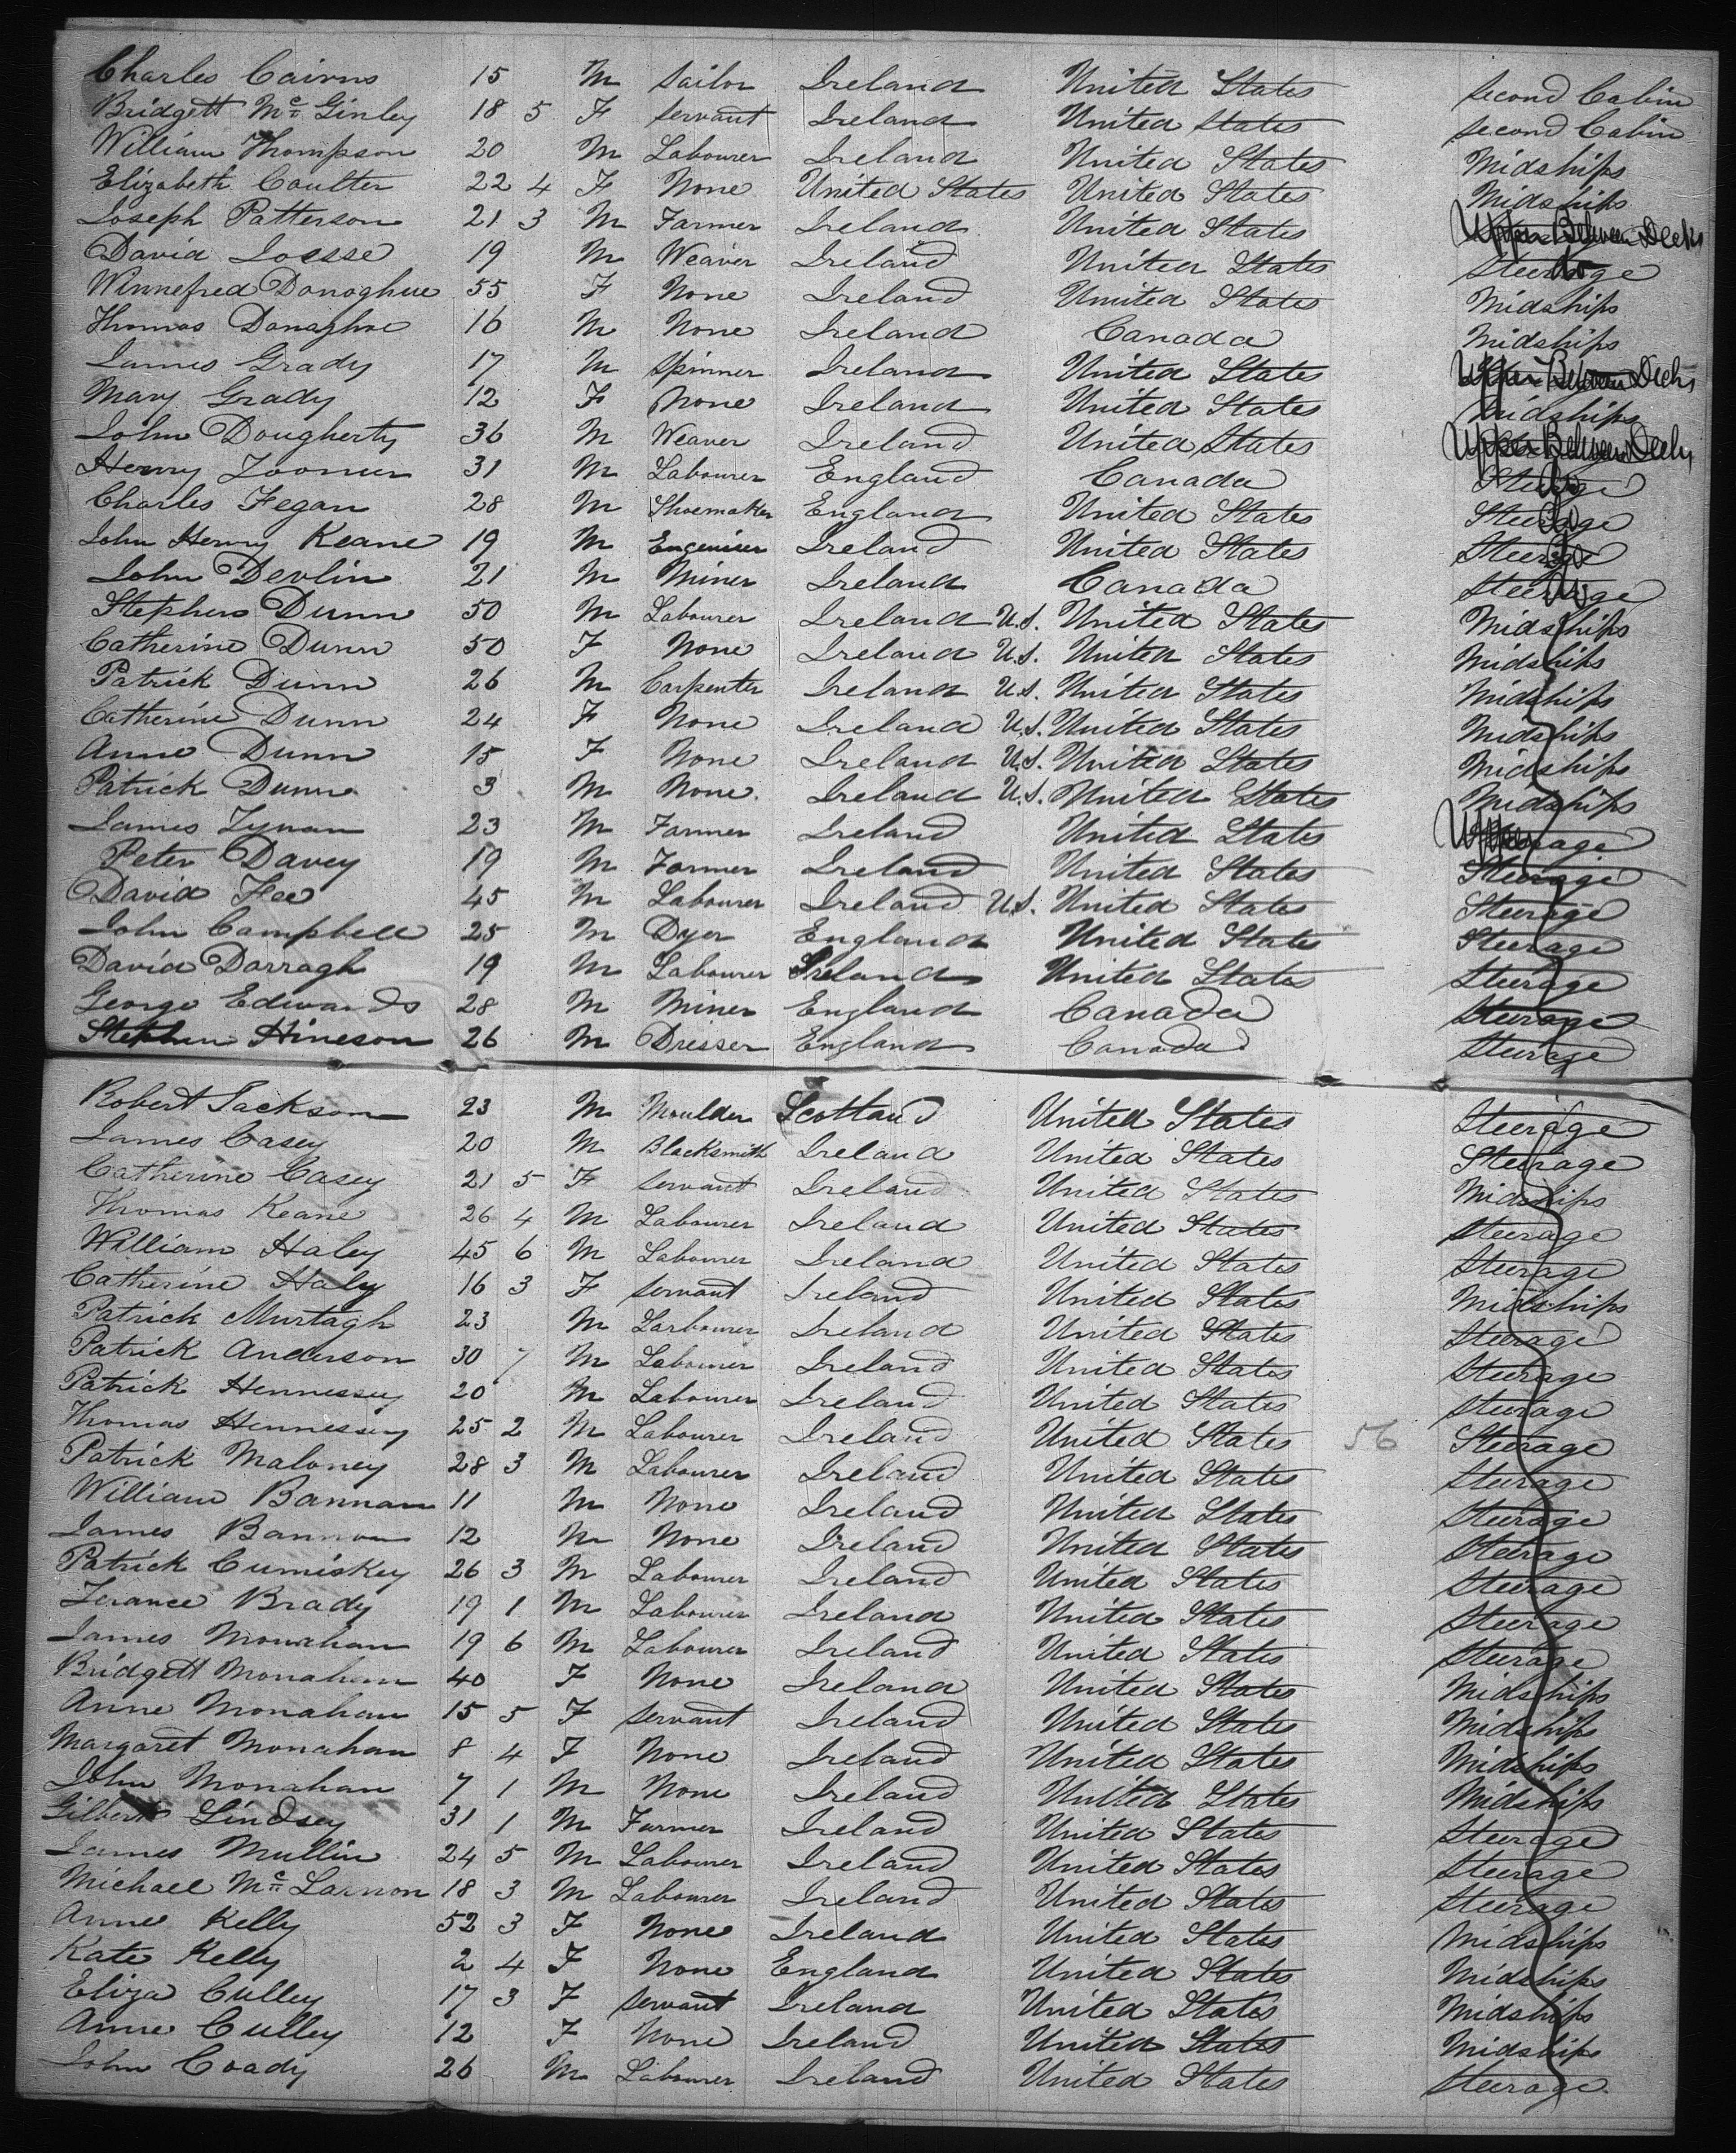 Charles Cairns 15 M Sailor Ireland United States Second Cabin
Bridgett Mc Ginley 18 5 F Servant Ireland United States Second Cabin
William Thompson 20 M Labourer Ireland United States Midships
Elizabeth Coulter 22 4 F None United States United States Midships
Joseph Patterson 21 3 M Farmer Ireland United States Upper Between Decks
David 19 M Weaver Ireland United States Steerage Do
Winnefred Donoghue 55 F None Ireland United States Midships
Thomas Donaghoe 16 M None Ireland Canada Midships
James Grady 17 M Spinner Ireland United States Upper Between Decks
Mary Grady 12 F None Ireland United States Midships
John Dougherty 36 M Weaver Ireland United States Upper Between Decks
Henry 31 M Labourer England Canada Steerage Do
Charles Fegan 28 M Shoemaker England United States Steerage Do
John Henry Keane 19 M Engenier Ireland United States Steerage Do
John Devlin 21 M Miner Ireland Canada Steerage Do
Stephen Dunn 50 M Labourer Ireland U.S. United States Midships
Catherine Dunn 50 F None Ireland U.S. United States Midships
Patrick Dunn 26 M Carpenter Ireland U.S. United States Midships
Catherine Dunn 24 F None Ireland U.S. United States Midships
Anne Dunn 15 F None Ireland U.S. United States Midships
Patrick Dunn 3 M None Ireland U.S. United States Midships
James Tynan 23 M Farmer Ireland United States Upper Steerage
Peter Davey 19 M Farmer Ireland United States Steerage
David Fee 45 M Labourer Ireland U.S. United States Steerage
John Campbell 25 M Dyer England United States Steerage
David Darragh 19 M Labourer Ireland United States Steerage
George Edwards 28 M Miner England Canada Steerage
Stephen Hineson 26 M Dresser England Canada Steerage
Robert Jackson 23 M Moulder Scotland United States Steerage
James Casey 20 M Blacksmith Ireland United States Steerage
Catherine Casey 21 5 F Servant Ireland United States Midships
Thomas Keane 26 4 M Labourer Ireland United States Steerage
William Haley 45 6 M Labourer Ireland United States Steerage
Catherine Haly 16 3 F Servant Ireland United States Midships
Patrick Murtagh 23 M Larbourer Ireland United States Steerage
Patrick Anderson 30 7 M Labourier Ireland United States Steerage
Patrick Hennessey 20 M Labourer Ireland United States Steerage
Thomas Hennessey 25 2 M Labourer Ireland United States 56 Steerage
Patrick Maloney 28 3 M Labourer Ireland United States Steerage
William Bannan 11 M None Ireland United States Steerage
James Bannon 12 M None Ireland United States Steerage
Patrick Cumiskey 26 3 M Labourer Ireland United States Steerage
Terance Brady 19 1 M Labourer Ireland United States Steerage
James Monahan 19 6 M Labourer Ireland United States Steerage
Bridgett Monahan 40 F None Ireland United States Midships
Anne Monahan 15 5 F Servant Ireland United States Midships
Margaret Monahan 8 4 F None Ireland United States Midships
John Monahan 7 1 M None Ireland United States Midships
Gilbert Lindsey 31 1 M Farmer Ireland United States Steerage
James Mullin 24 5 M Labourer Ireland United States Steerage
Michael Mc Larnon 18 3 M Labourer Ireland United States Steerage
Anne Kelly 52 3 F None Ireland United States Midships
Kate Kelly 2 4 F None England United States Midships
Eliza Culley 17 3 F Servant Ireland United States Midships
Anne Culley 12 F None Ireland United States Midships
John Coady 26 M Labourer Ireland United States Steerage